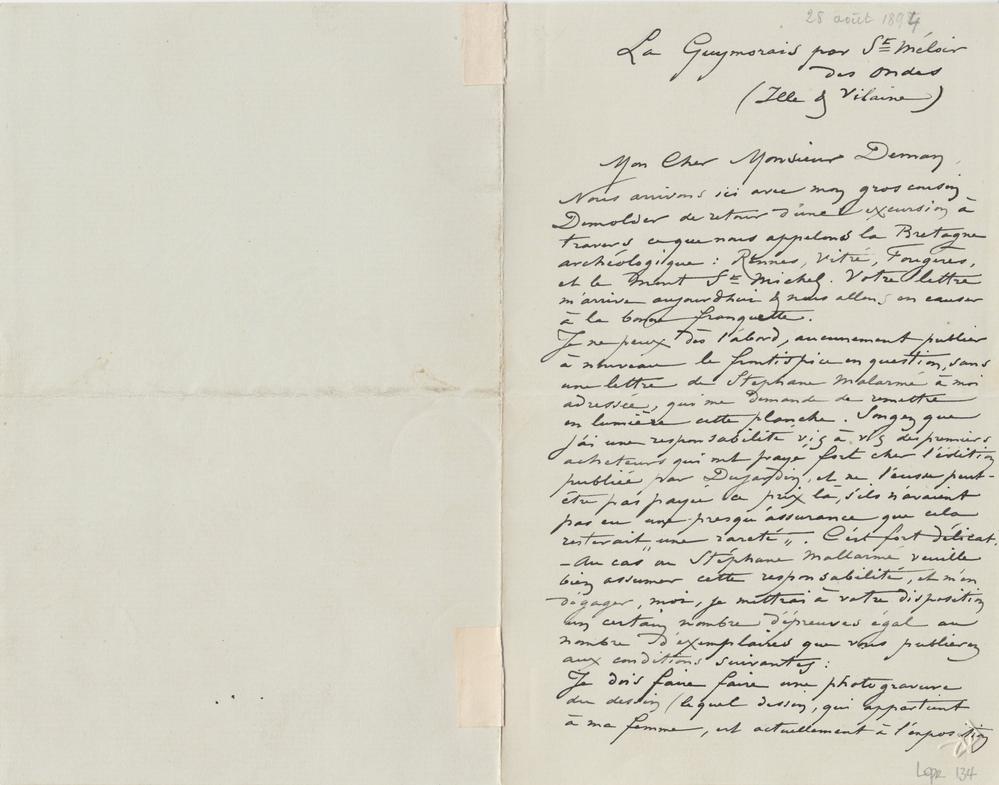 25 août 1894
La Guymorais par St Méloir
des ondes
(Ille & Vilaine)
Mon Cher Monsieur Deman,
Nous arrivons ici avec mon gros cousin
Demolder de retour d'une excursion à
travers ce que nous appelons la Bretagne
archéologique : Rennes, Vitré, Fougères,
et le Mont St Michel. Votre lettre
m'arrive aujourdhui & nous allons en causer
à la bonne franquette.
Je ne peux dès l'abord, aucunement publier
à nouveau le frontispice en question, sans
une lettre de Stephane Malarmé à moi
adressée, qui me demande de remettre
en lumière cette planche. Songez que
j'ai une responsabilité vis à vis des premiers
acheteurs qui ont payé fort cher l'édition
publiée par Dujardin, et ne l'eusse peut-
être pas payée ce prix là, s'ils n'avaient
pas eu une presqu'assurance que cela
resterait "une rareté". C'est fort délicat.
- Au cas où Stéphane Mallarmé veuille
bien assumer cette responsabilité, et m'en
dégager, moi, je mettrai à votre disposition
un certain nombre d'épreuves égal au
nombre d'exemplaires que vous publierez
aux conditions suivantes :
Je dois faire faire une photogravure
du dessin (lequel dessin, qui appartient
à ma femme, est actuellement à l'exposition
Lepr 134